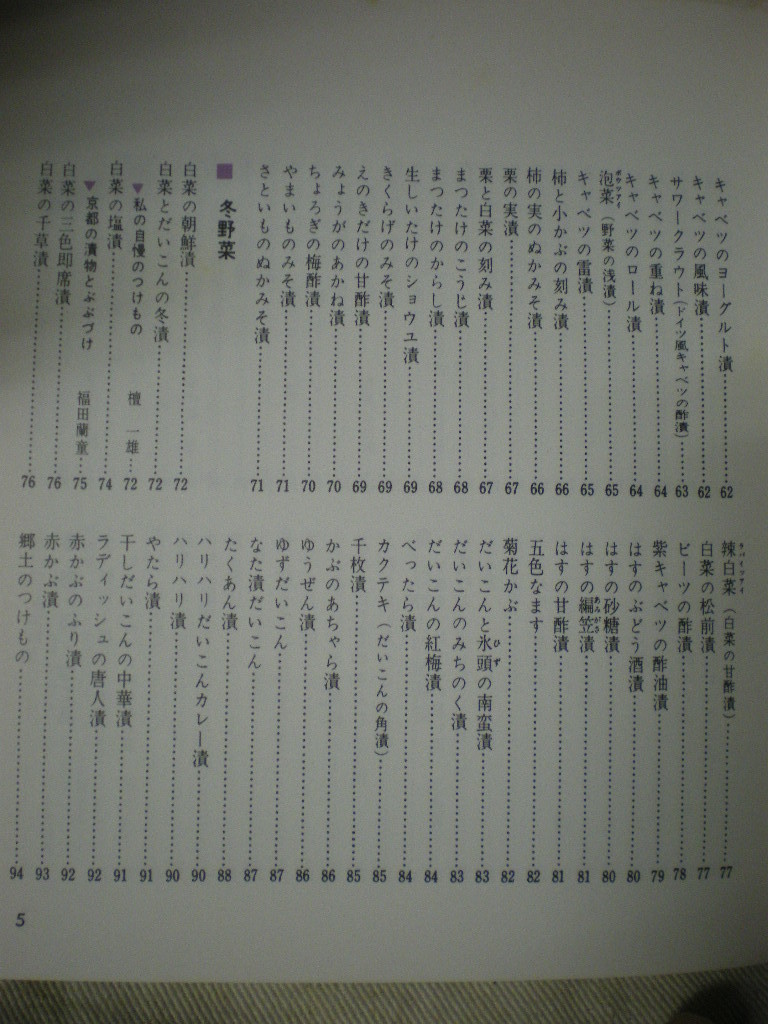 キャベツのヨーグルト漬……62
キャベツの風味漬……62
サワークラウト(ドイツ風キャベツの酢漬)……63
キャベツの重ね漬……64
キャベツのロール漬……64
泡菜(野菜の浅漬)……65
キャベツの雷漬……65
柿と小かぶの刻み漬……66
柿の実のぬかみそ漬……66
栗の実漬……67
栗と白菜の刻み漬……67
まつたけのこうじ漬……68
まつたけのからし漬……68
生しいたけのショウユ漬……69
きくらげのみそ漬……69
えのきだけの甘酢漬……69
みょうがのあかね漬……70
ちょろぎの梅酢漬……70
やまいものみそ漬……71
さといものぬかみそ漬……71
■ 冬野菜
白菜の朝鮮漬……72
白菜とだいこんの冬漬……72
▼私の自慢のつけもの 檀 一雄 72
白菜の塩漬……74
▼京都の漬物とぶぶづけ 福田蘭童 75
白菜の三色即席漬……76
白菜の千草漬……76
辣白菜(白菜の甘酢漬)……77
白菜の松前漬……77
ビーツの酢漬……78
紫キャベツの酢油漬……79
はすのぶどう酒漬……80
はすの砂糖漬……80
はすの編笠漬……81
あみがさ
はすの甘酢漬……81
五色なます……82
菊花かぶ……82
だいこんと氷頭の南蛮漬……83
ひず
だいこんのみちのく漬……83
だいこんの紅梅漬……84
べったら漬……84
カクテキ(だいこんの角漬)……85
千枚漬……85
かぶのあちゃら漬……86
ゆうぜん漬……86
ゆずだいこん……87
なた漬だいこん……87
たくあん漬……88
ハリハリだいこんカレー漬……90
ハリハリ漬……90
やたら漬……91
干しだいこんの中華漬……91
ラディッシュの唐人漬……92
赤かぶのふり漬……92
赤かぶ漬……93
郷土のつけもの……94
5